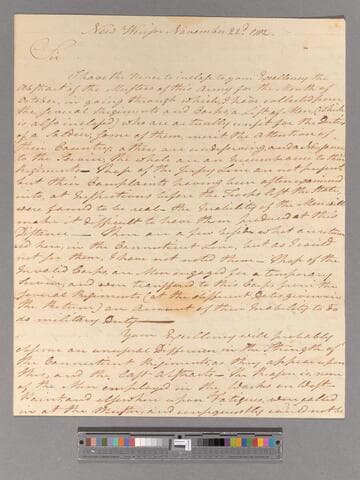 New Windsor November 22d. 1782
Sir
I have the Honor to inclose to your Excellency the
Abstract of the Musters of this Army for the Month of
October, in going through which, I have collected from
the several Regiments and Corps a List of Men (which
is also inclosed) who are actually unfit for the Duties
of a Soldier, some of them, merit the Attention of
their Country; others are undeserving, and a
to the Service, the whole are an Incumbrance to their
Regiments — Those of the are not present
but their Complaints having been
into, at Inspections before the Troops left the State,
were found to be real — the Inability of the Men will
make it difficult to have them produced at this
Distance — There are a few besides what are
ed here, in the Connecticut Line, but as I could
not see them, I have not noted them — Those of the
Invalid Corps are Men engaged for a temporary
Service, and were transferred to this Corps from the
several Regiments (at the different Dates given in
the Return) on Account of their Inability to do
a military Duty —
Your Excellency will probably
observe an unusual Difference in the Strength of
the Connecticut Regiments, as they appear upon
this, and the last Abstract — The Reason is, some
of the Men employed in the Works on West
Point, and elsewhere upon Fatigue, were called
in at the Muster, and consequently could not be